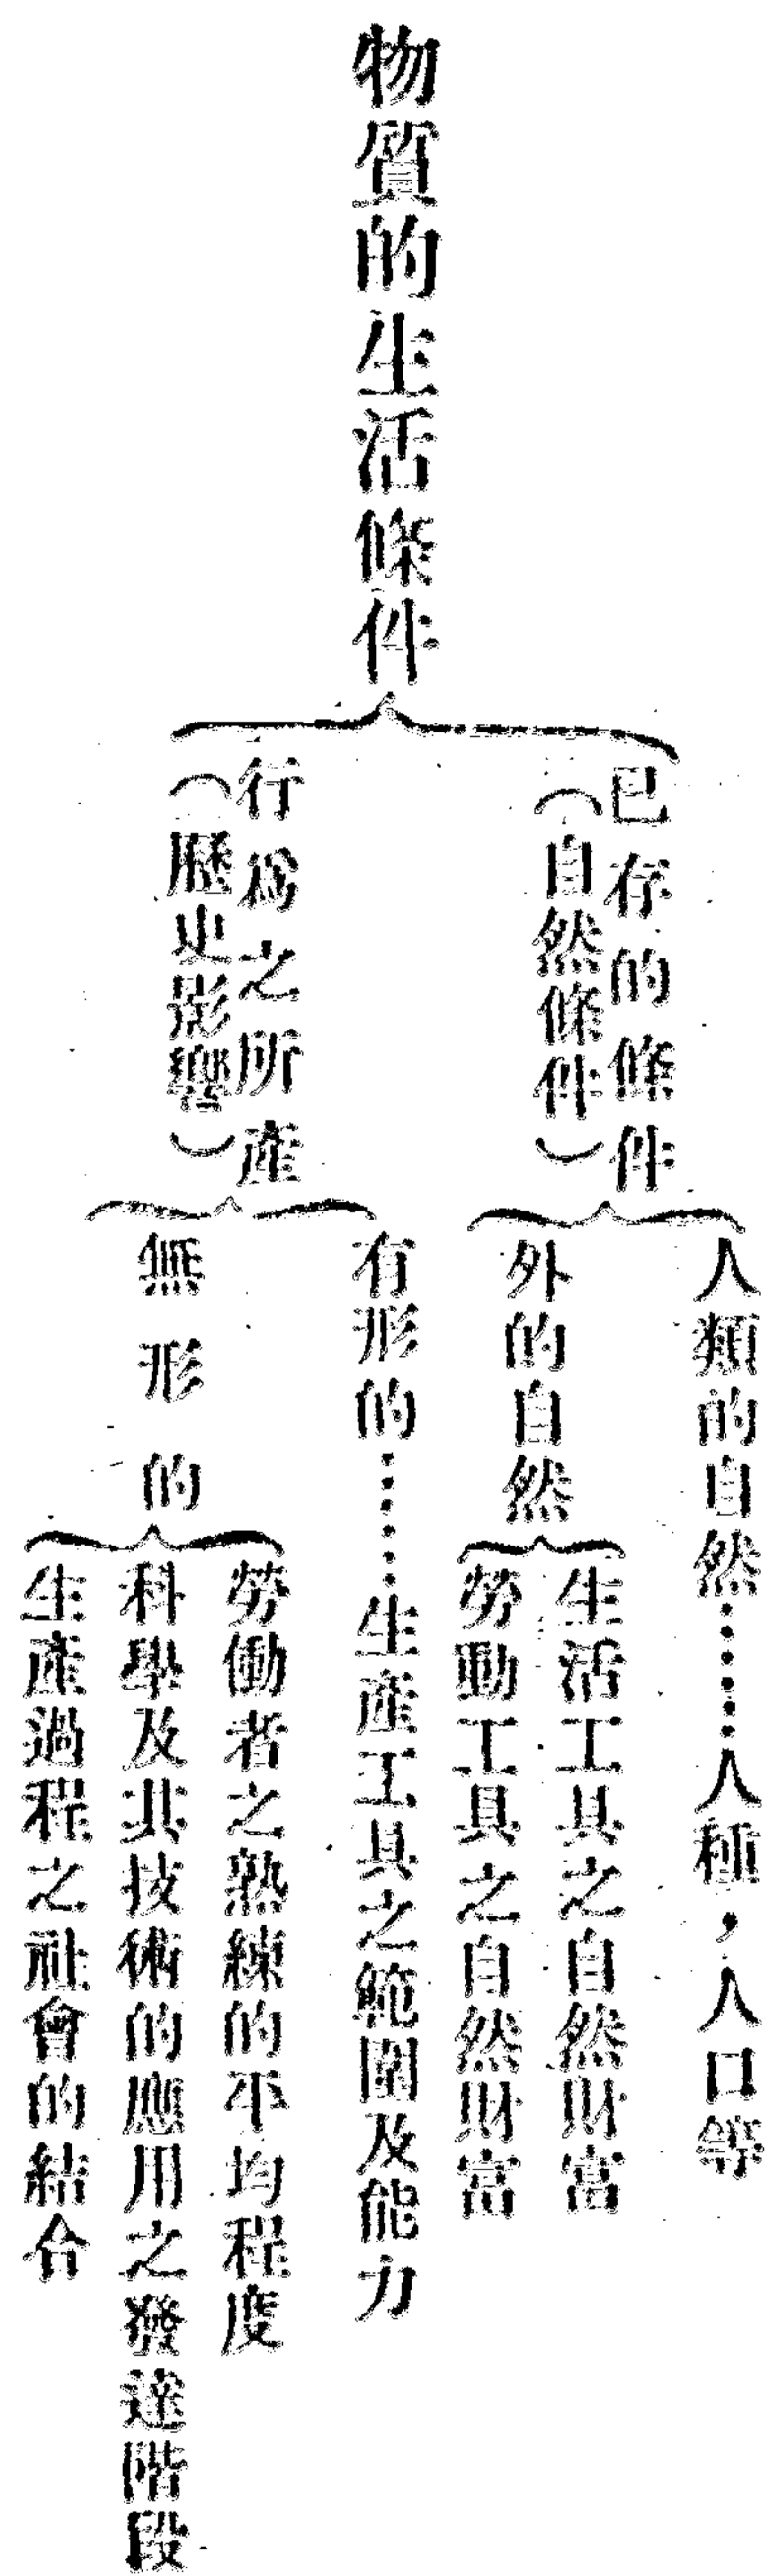 物質的生活條件
已存的條件
(自然條件)
人類的自然……人種，人口等
外的自然
生活工具之自然財富
勞動工具之自然財富
行爲之所產
(歷史影響)
有形的……生產工具之範圍及能力
無形的
勞働者之熟練的平均程度
科學及其技術的應用之發達階段
生產過程之社會的結合